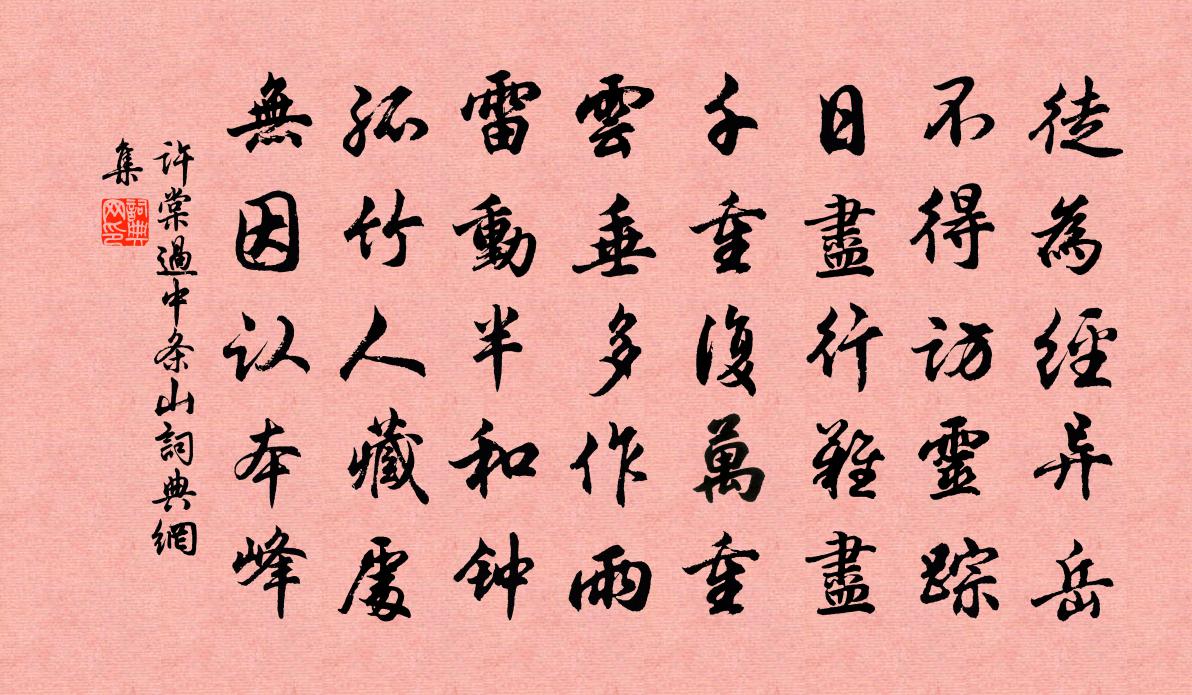 徒為經异岳
不得訪靈踪
日盡行難盡
千重復萬重
雲垂多作雨
雷動半和钟
孤竹人藏處
無因认本峰
許棠過中条山詞典網
集
詞典网印